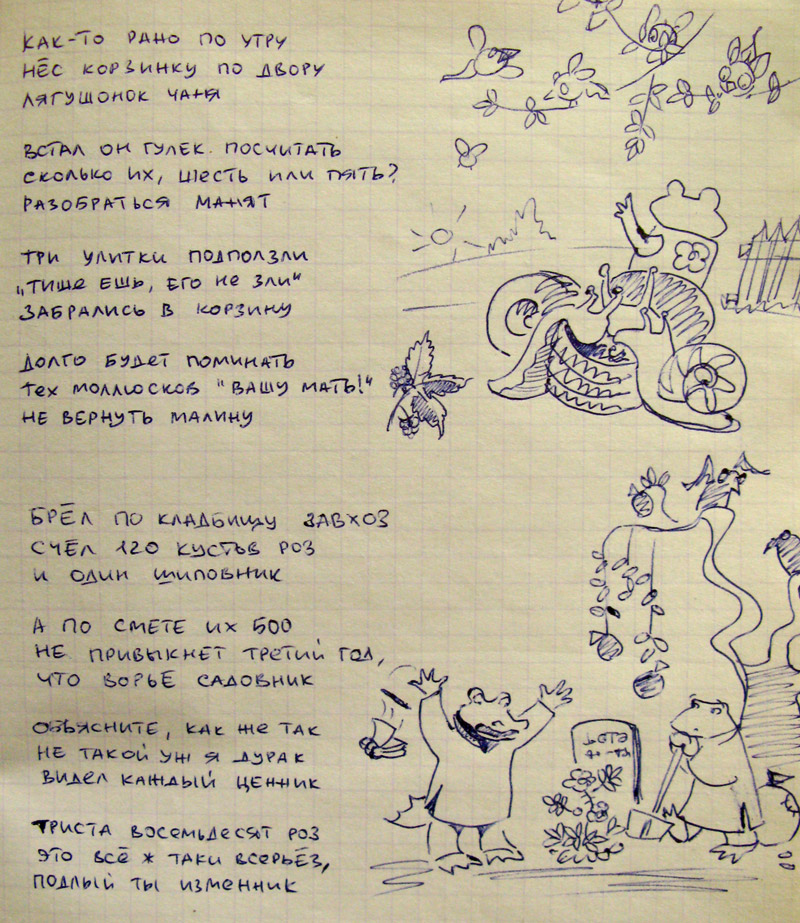 КАК-ТО РАНО ПО УТРУ
НЁС КОРЗИНКУ ПО ДВОРУ
ЛЯГУШОНОК ЧАНЯ
ВСТАЛ ОН ГУЛЕК ПОСЧИТАТЬ
СКОЛЬКО ИХ, ШЕСТЬ ИЛИ ПЯТЬ?
РАЗОБРАТЬСЯ МАНЯТ
ТРИ УЛИТКИ ПОДПОЛЗЛИ
„ТИШЕ ЕШЬ, ЕГО НЕ ЗЛИ“
ЗАБРАЛИСЬ В КОРЗИНУ
ДОЛГО БУДЕТ ПОМИНАТЬ
ТЕХ МОЛЛЮСКОВ "ВАШУ МАТЬ!"
НЕ ВЕРНУТЬ МАЛИНУ
БРЁЛ ПО КЛАДБИЩУ ЗАВХОЗ
СЧЁЛ 120 КУСТЬВ РОЗ
И ОДИН ШИПОВНИК
А ПО СМЕТЕ ИХ 500
НЕ ПРИВЫКНЕТ ТРЕТИЙ ГОД,
ЧТО ВОРЬЁ САДОВНИК
ОБЪЯСНИТЕ, КАК ЖЕ ТАК
НЕ ТАКОЙ УЖ Я ДУРАК
ВИДЕЛ КАЖДЫЙ ЦЕННИК
ТРИСТА ВОСЕМЬДЕСЯТ РОЗ
ЭТО ВСЁ Ж ТАКИ ВСЕРЬЁЗ,
ПОДЛЫЙ ТЫ ИЗМЕННИК